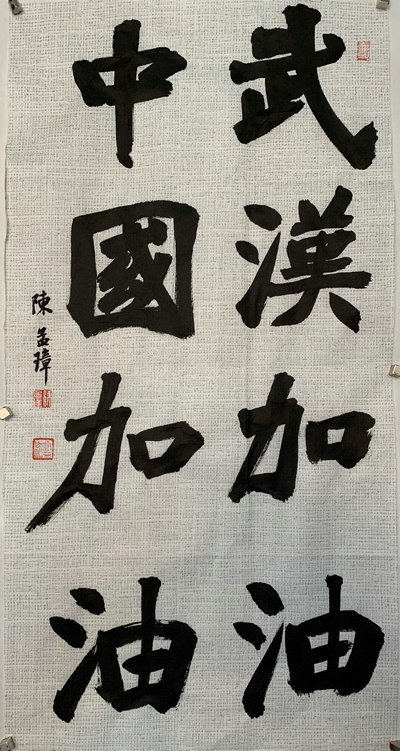 武漢加油
中國加油
陳孟璋